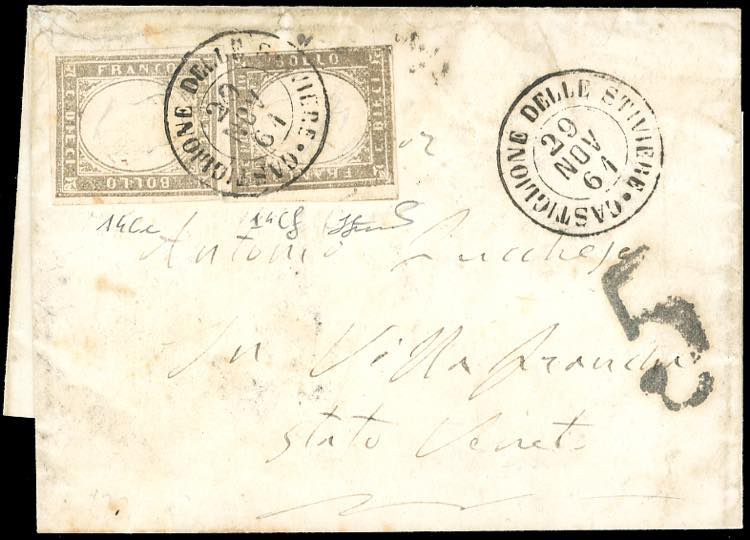 FRANCO
BOLLO
BOLLO
CASTIGLIONE DELLE STIVIERE
29
NOV
61
CASTIGLIONE DELLE STIVIERE
29
NOV
61
14Cc
Antonio
In Villafranca
Stato Veneto